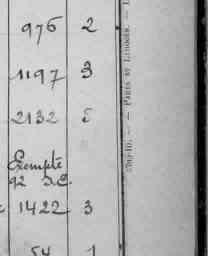 976 2
1197 3
2132 5
Exempté
92 D.E.
1422 3
54 1
— PARIS ET LIMOGES. —